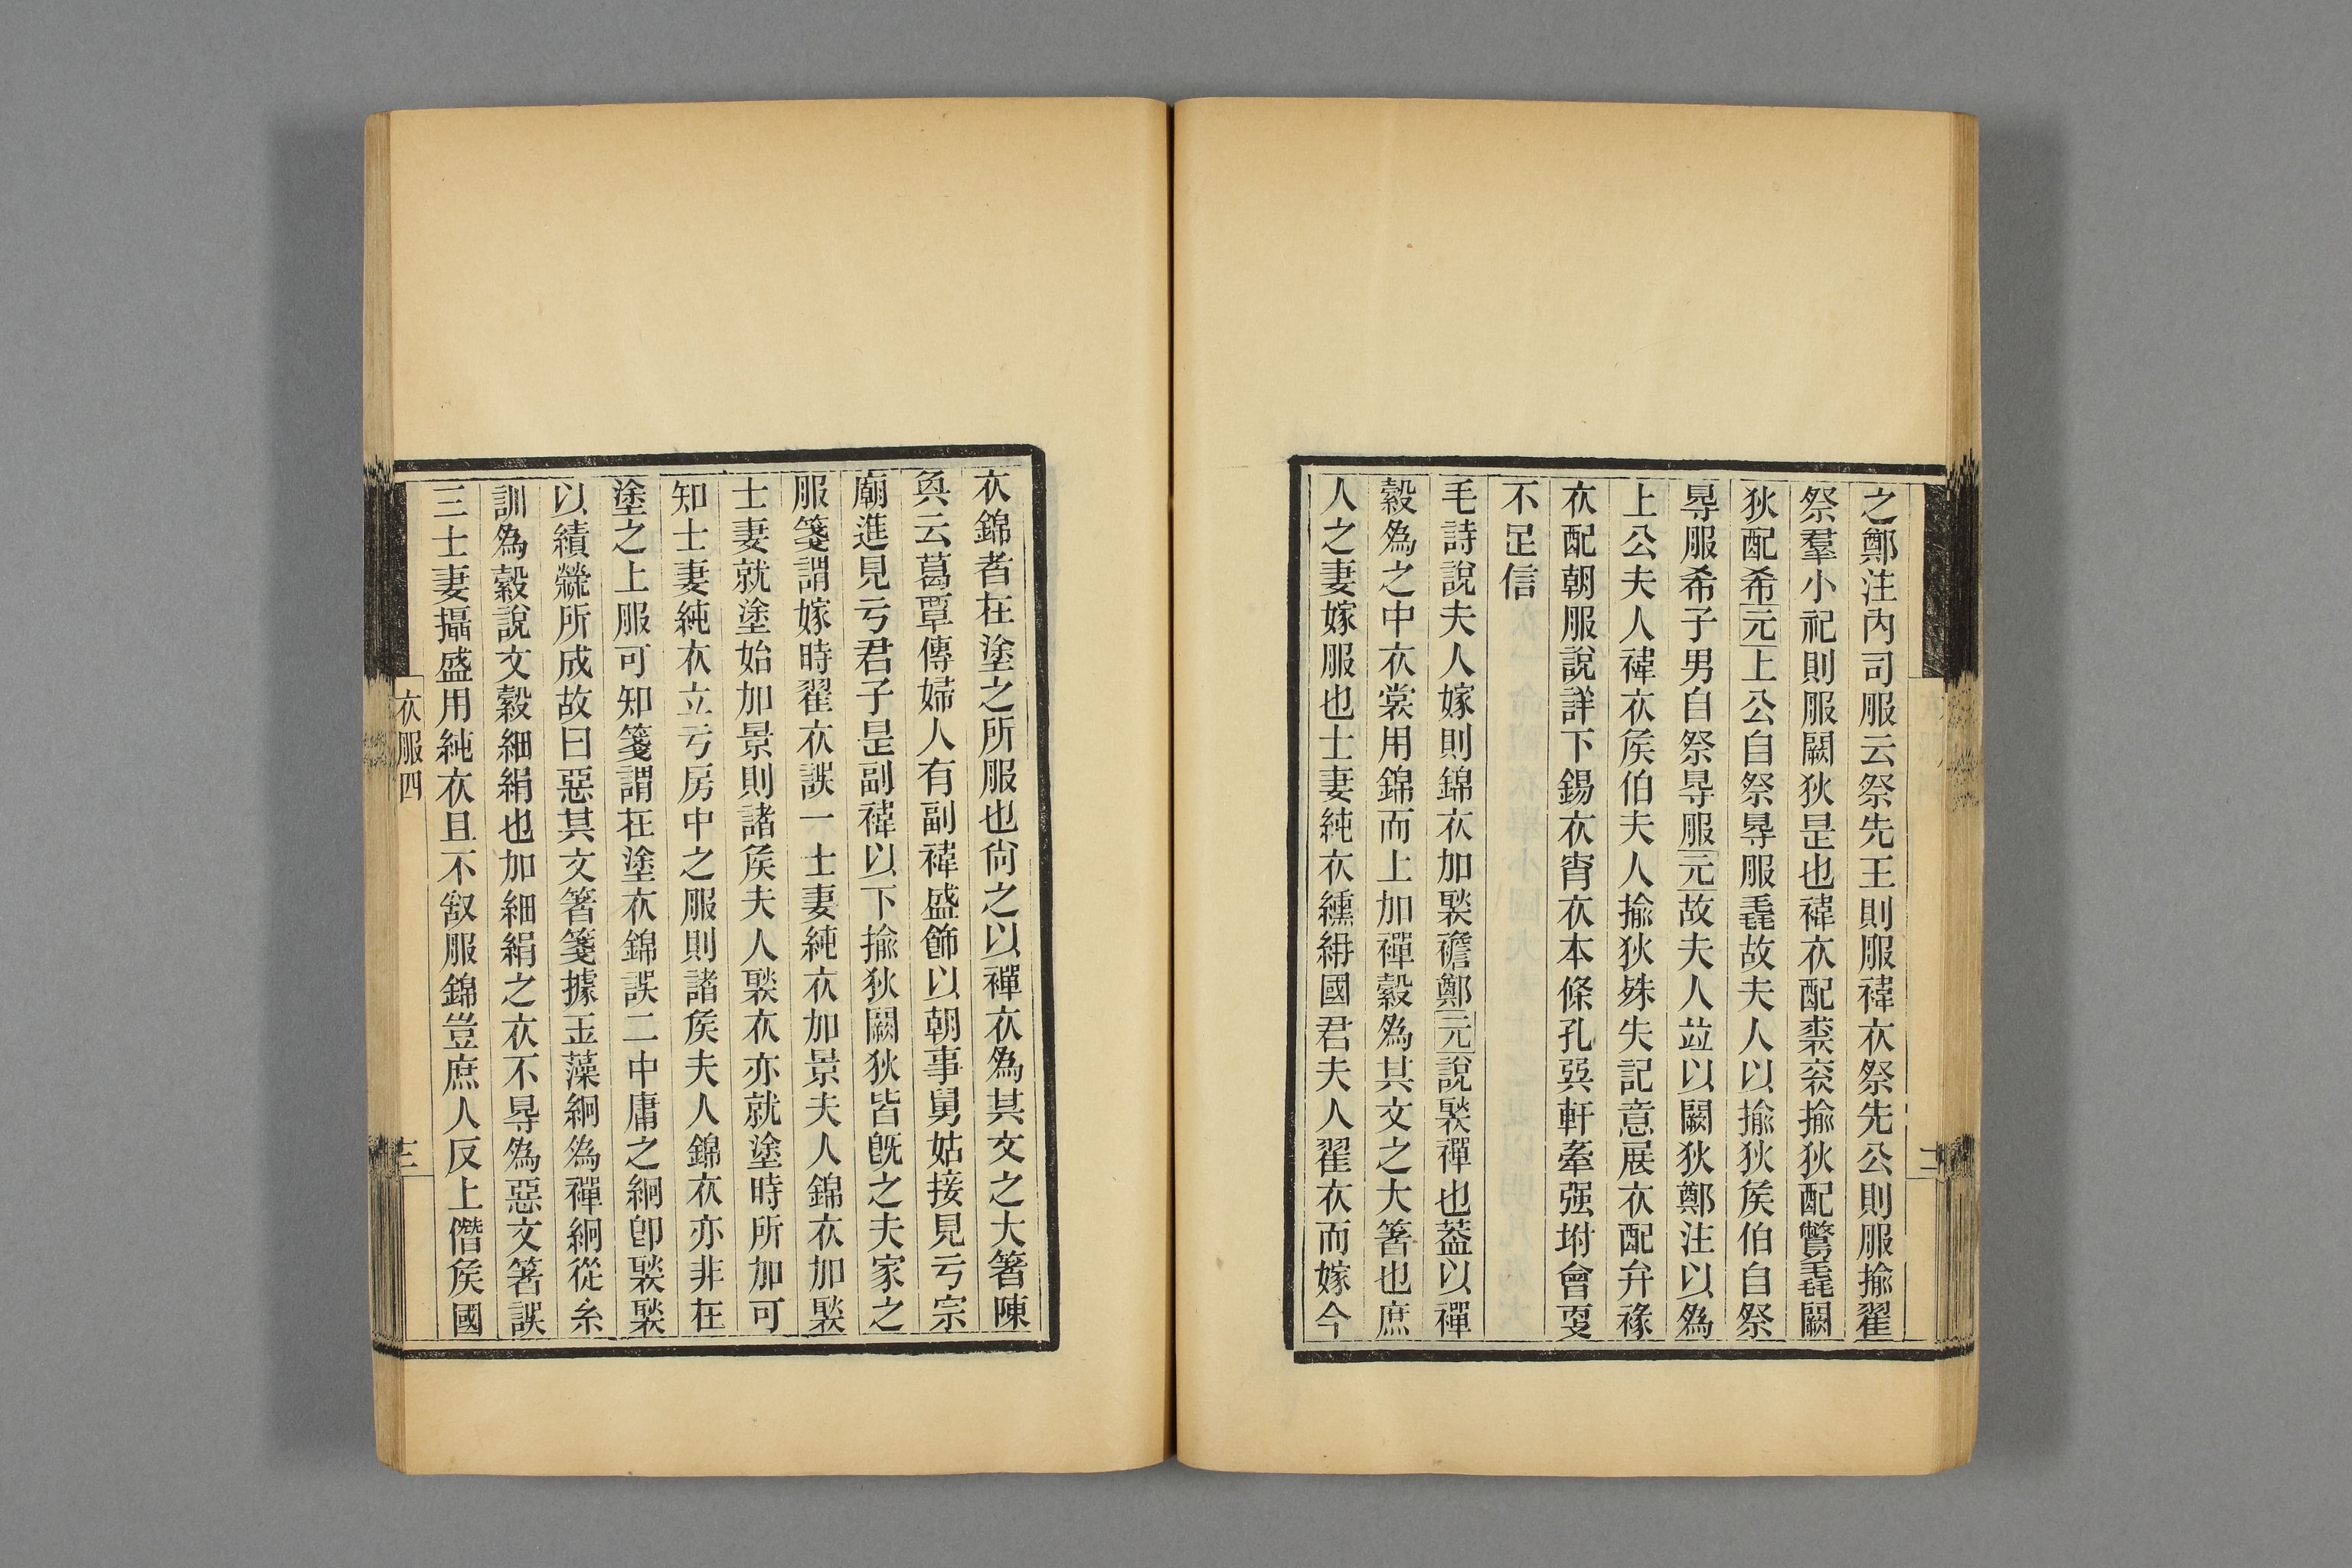 之鄭注內司服云祭先王則服褘衣祭先公則服揄翟
祭羣小祀則服闕狄是也褘衣配裘袞揄狄配鷩毳闕
狄配希元上公自祭得服毳故夫人以揄狄矦伯自祭
得服希子男自祭得服元故夫人竝以闕狄鄭注以爲
上公夫人褘衣矦伯夫人揄狄殊失記意展衣配弁褖
衣配朝服說詳下錫衣宵衣本條孔巽軒牽强坿會更
不足信
毛詩說夫人嫁則錦衣加褧襜鄭元說褧禪也葢以禪
縠爲之中衣裳用錦而上加禪縠爲其文之大箸也庶
人之妻嫁服也士妻純衣纁袡國君夫人翟衣而嫁今
衣錦者在塗之所服也尙之以禪衣爲其文之大箸陳
奐云葛覃傳婦人有副褘盛飾以朝事舅姑接見亏宗
廟進見亏君子是副褘以下揄狄闕狄皆旣之夫家之
服箋謂嫁時翟衣誤一士妻純衣加景夫人錦衣加褧
士妻就塗始加景則諸矦夫人褧衣亦就塗時所加可
知士妻純衣立亏房中之服則諸矦夫人錦衣亦非在
塗之上服可知箋謂在塗衣錦誤二中庸之絅卽褧褧
以績檾所成故曰惡其文箸箋據玉藻絅爲禪絅從糸
訓爲縠說文縠細絹也加細絹之衣不得爲惡文箸誤
三士妻攝盛用純衣且不敢服錦豈庶人反上僭矦國
衣服四
三
二